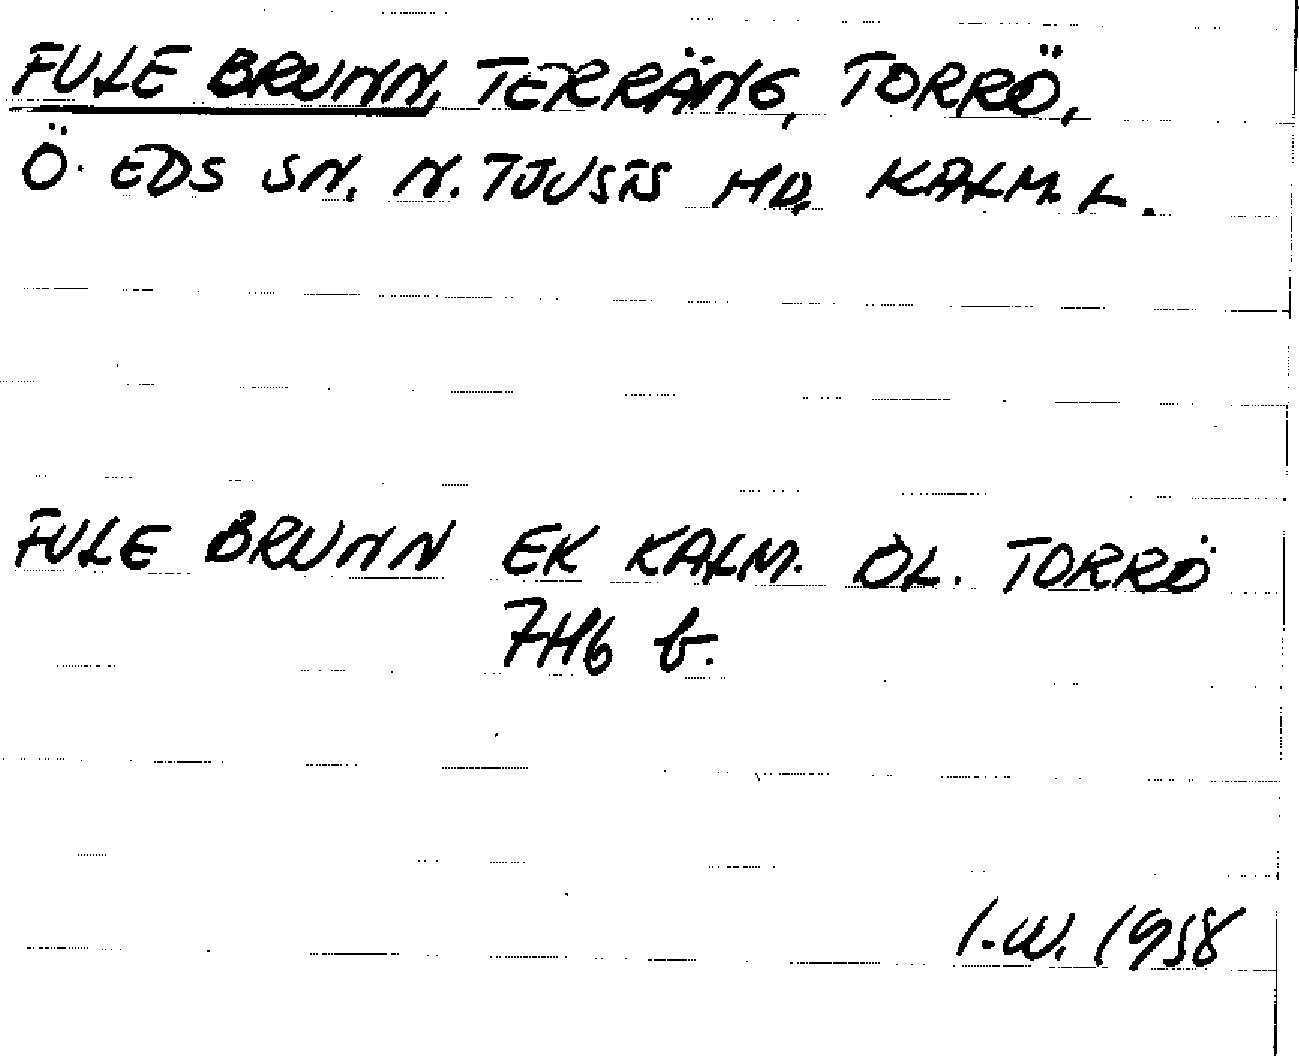 FULE BRUNN, TERRÄNG, TORRÖ,
Ö. EDS SN. N. TJUSTS HD. KALM. L.
FULE BRUNN EK KALM. ÖL. TORRÖ
7H6 b.
I.W. 1958